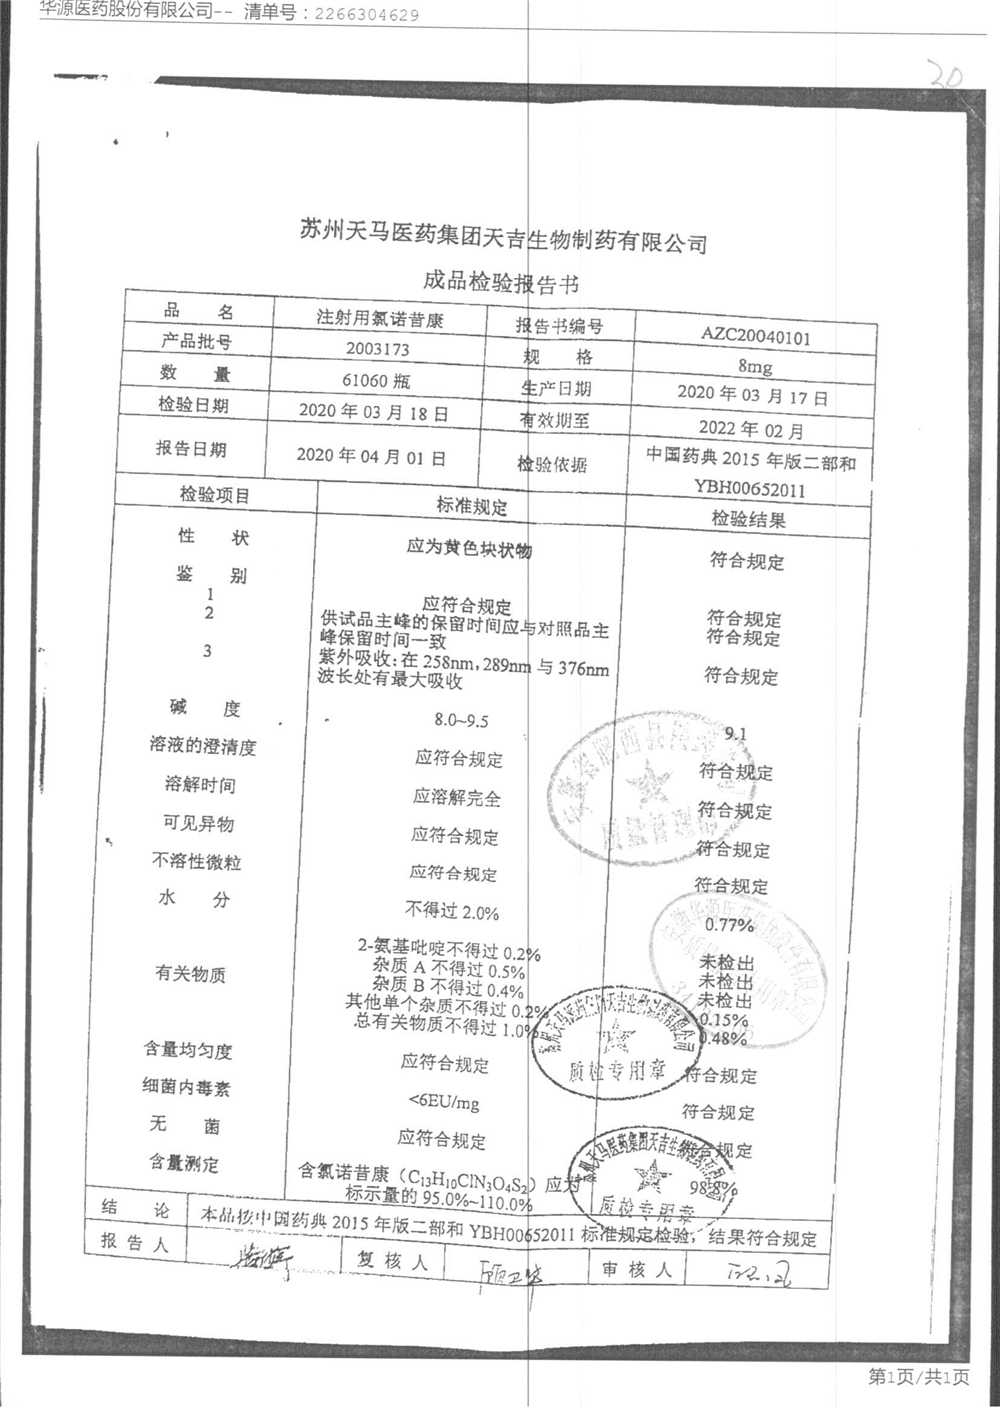 华源医药股份有限公司-- 清单号：2266304629
20
苏州天马医药集团天吉生物制药有限公司
成品检验报告书
品 名 注射用氯诺昔康 报告书编号 AZC20040101
产品批号 2003173 规 格 8mg
数 量 61060 瓶 生产日期 2020 年 03 月 17 日
检验日期 2020 年 03 月 18 日 有效期至 2022 年 02 月
报告日期 2020 年 04 月 01 日 检验依据 中国药典 2015 年版二部和
YBH00652011
检验项目 标准规定 检验结果
性 状 应为黄色块状物 符合规定
鉴 别
1 应符合规定 符合规定
2 供试品主峰的保留时间应与对照品主 符合规定
峰保留时间一致
3 紫外吸收：在 258nm，289nm 与 376nm 符合规定
波长处有最大吸收
碱 度 8.0~9.5 9.1
溶液的澄清度 应符合规定 符合规定
溶解时间 应溶解完全 符合规定
可见异物 应符合规定 符合规定
不溶性微粒 应符合规定 符合规定
水 分 不得过 2.0% 0.77%
2-氨基吡啶不得过 0.2% 未检出
有关物质 杂质 A 不得过 0.5% 未检出
杂质 B 不得过 0.4% 未检出
其他单个杂质不得过 0.2% 0.15%
总有关物质不得过 1.0% 0.48%
含量均匀度 应符合规定 符合规定
细菌内毒素 <6EU/mg 符合规定
无 菌 应符合规定 符合规定
含量测定 含氯诺昔康（C₁₃H₁₀ClN₃O₄S₂）应为 98.8%
标示量的 95.0%~110.0%
苏州天马医药集团天吉生物制药有限公司
质检专用章
苏州天马医药集团天吉生物制药有限公司
质检专用章
结 论 本品按中国药典 2015 年版二部和 YBH00652011 标准规定检验，结果符合规定
报 告 人 复 核 人 审 核 人
第1页/共1页